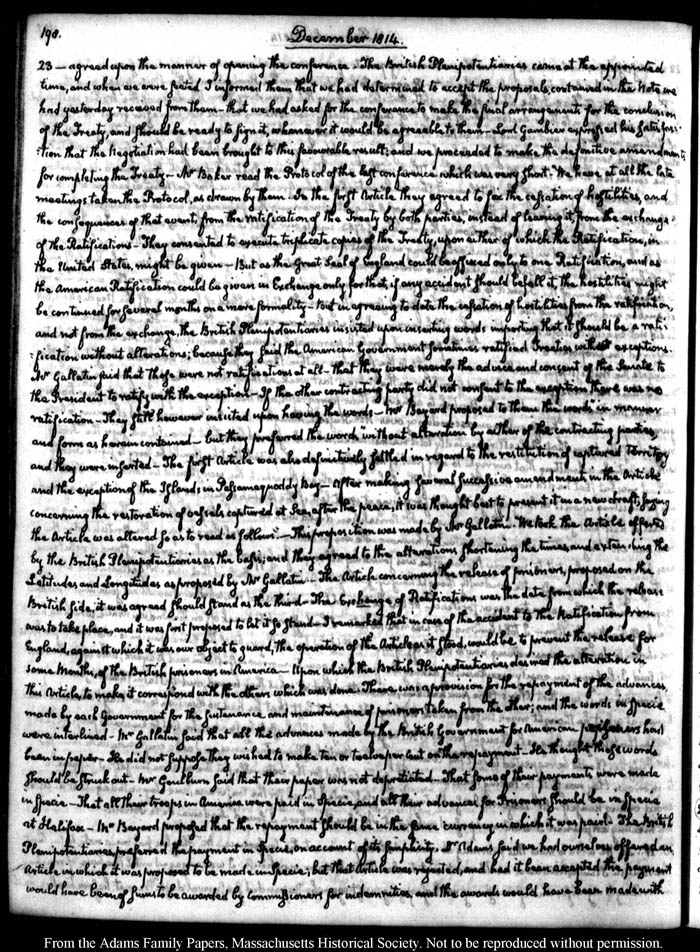 190.
December 1814.
23 — agreed upon the manner of opening the conference. The British Plenipotentiaries came at the appointed
time, and when we were seated I informed them that we had determined to accept the proposals, contained in the Note we
had yesterday received from them — that we had asked for the conference to make the final arrangements for the conclusion
of the Treaty, and should be ready to sign it, whenever it would be agreeable to them — Lord Gambier expressed his satisfac-
-tion that the Negotiation had been brought to this favourable result; and we proceeded to make the definitive amendments
for completing the Treaty — Mr Baker read the Protocol of the last conference which was very short. We have at all the late
meetings taken the Protocol, as drawn by them. In the first Article they agreed to fix the cessation of hostilities, and
the consequences of that event, from the ratification of the Treaty by both parties, instead of leaving it, from the exchange
of the Ratifications — They consented to execute triplicate copies of the Treaty, upon either of which the Ratification, in
the United States, might be given — But as the Great Seal of England could be affixed only to one Ratification, and as
the American Ratification could be given in Exchange only for that, if any accident should befall it, the hostilities might
be continued for several months on a mere formality — But in agreeing to date the cessation of hostilities from the ratification,
and not from the exchange, the British Plenipotentiaries insisted upon inserting words importing that it should be a rati-
-fication without alterations; because they said the American Government sometimes ratified Treaties with exceptions.
Mr Gallatin said that those were not ratifications at all — that they were merely the advice and consent of the Senate to
the President to ratify with the exception — If the other contracting party did not consent to the exception there was no
ratification — They still however insisted upon having the words — Mr Bayard proposed to them the words "in manner
and form as herein contained — but they preferred the words "without alteration by either of the contracting parties,
and they were inserted — The first Article was also definitively settled in regard to the restitution of captured Territory
and the exception of the Islands in Passamaquoddy Bay — After making several successive amendments in the Article
concerning the restoration of vessels captured at Sea, after the peace, it was thought best to present it in a new draft, saying
the Article was altered so as to read as follows — This proposition was made by Mr Gallatin. We took the Article offered
by the British Plenipotentiaries as the basis; and they agreed to the alterations shortening the times, and extending the
Latitudes and Longitudes as proposed by Mr Gallatin — The Article concerning the release of prisoners, proposed on the
British side, it was agreed should stand as the third — The Exchange of Ratifications was the date from which the release
was to take place, and it was first proposed to let it so stand — I remarked that in case of the accident to the Ratification from
England, against which it was our object to guard, the operation of the Article as it stood, would be to prevent the release for
some Months, of the British prisoners in America — Upon which the British Plenipotentiaries desired the alteration in
this Article, to make it correspond with the others which was done. There was a provision for the repayment of the advances,
made by each Government for the sustenance and maintenance of prisoners taken from the other; and the words in specie
were interlined — Mr Gallatin said that all the advances made by the British Government for American prisoners had
been in paper — He did not suppose they wished to make ten or twelve per cent on the repayment — He thought those words
should be struck out — Mr Goulburn said that their paper was not depreciated — That some of their payments were made
in Specie — That all their troops in America were paid in Specie, and all their advances for Prisoners should be in Specie
at Halifax — Mr Bayard proposed that the repayment should be in the same currency in which it was paid. The British
Plenipotentiaries preferred the payment in Specie, on account of its simplicity. Mr Adams said we had ourselves offered an
Article in which it was proposed to be made in specie; but that Article was rejected, and had it been accepted the payment
would have been of sums to be awarded by Commissioners for indemnities, and the awards would have been made with
From the Adams Family Papers, Massachusetts Historical Society. Not to be reproduced without permission.